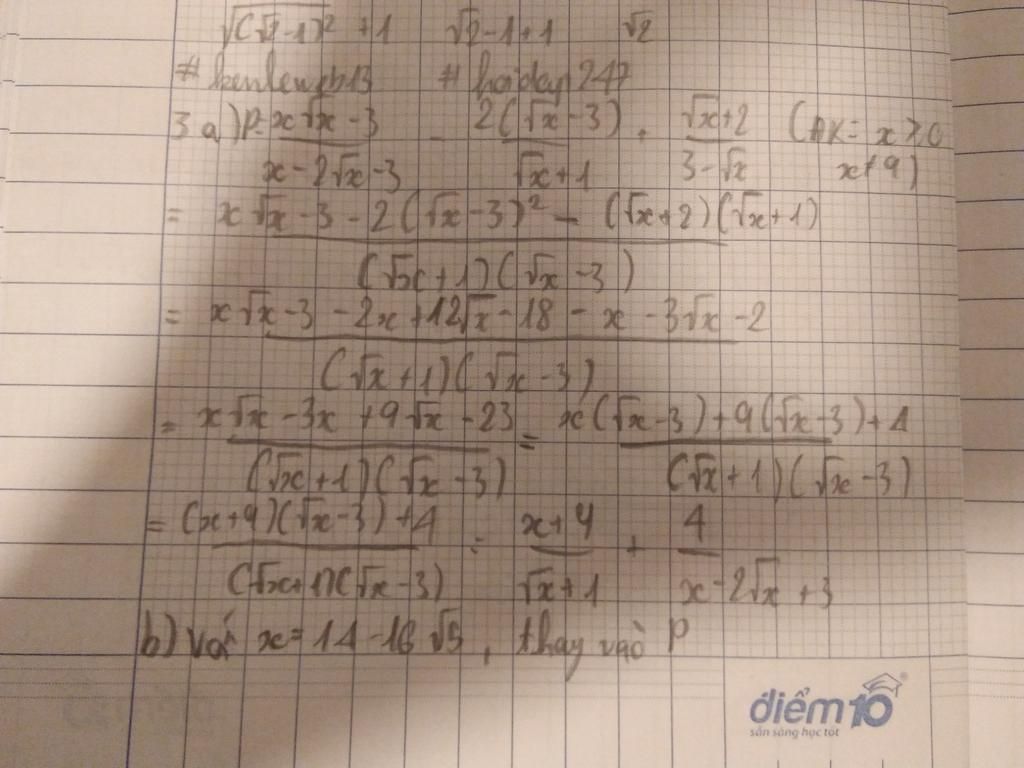 √(√2-1)² + 1 √2-1+1 √2
# hoidap247
3 a) P= x√x - 3 / x - 2√x - 3 - 2(√x - 3) / √x + 1 . √x + 2 / 3 - √x (ĐK = x ≥ 0 x ≠ 9)
= x√x - 3 - 2(√x - 3)² - (√x + 2)(√x + 1) / (√x + 1)(√x - 3)
= x√x - 3 - 2x + 12√x - 18 - x - 3√x - 2 / (√x + 1)(√x - 3)
= x√x - 3x + 9√x - 23 / (√x + 1)(√x - 3) = x(√x - 3) + 9(√x - 3) + 4 / (√x + 1)(√x - 3)
= (x + 9)(√x - 3) + 4 / (√x + 1)(√x - 3) = x + 9 / √x + 1 + 4 / x - 2√x + 3
b) Với x = 14 - 16√5, thay vào P
điểm 10
sẵn sàng học tốt